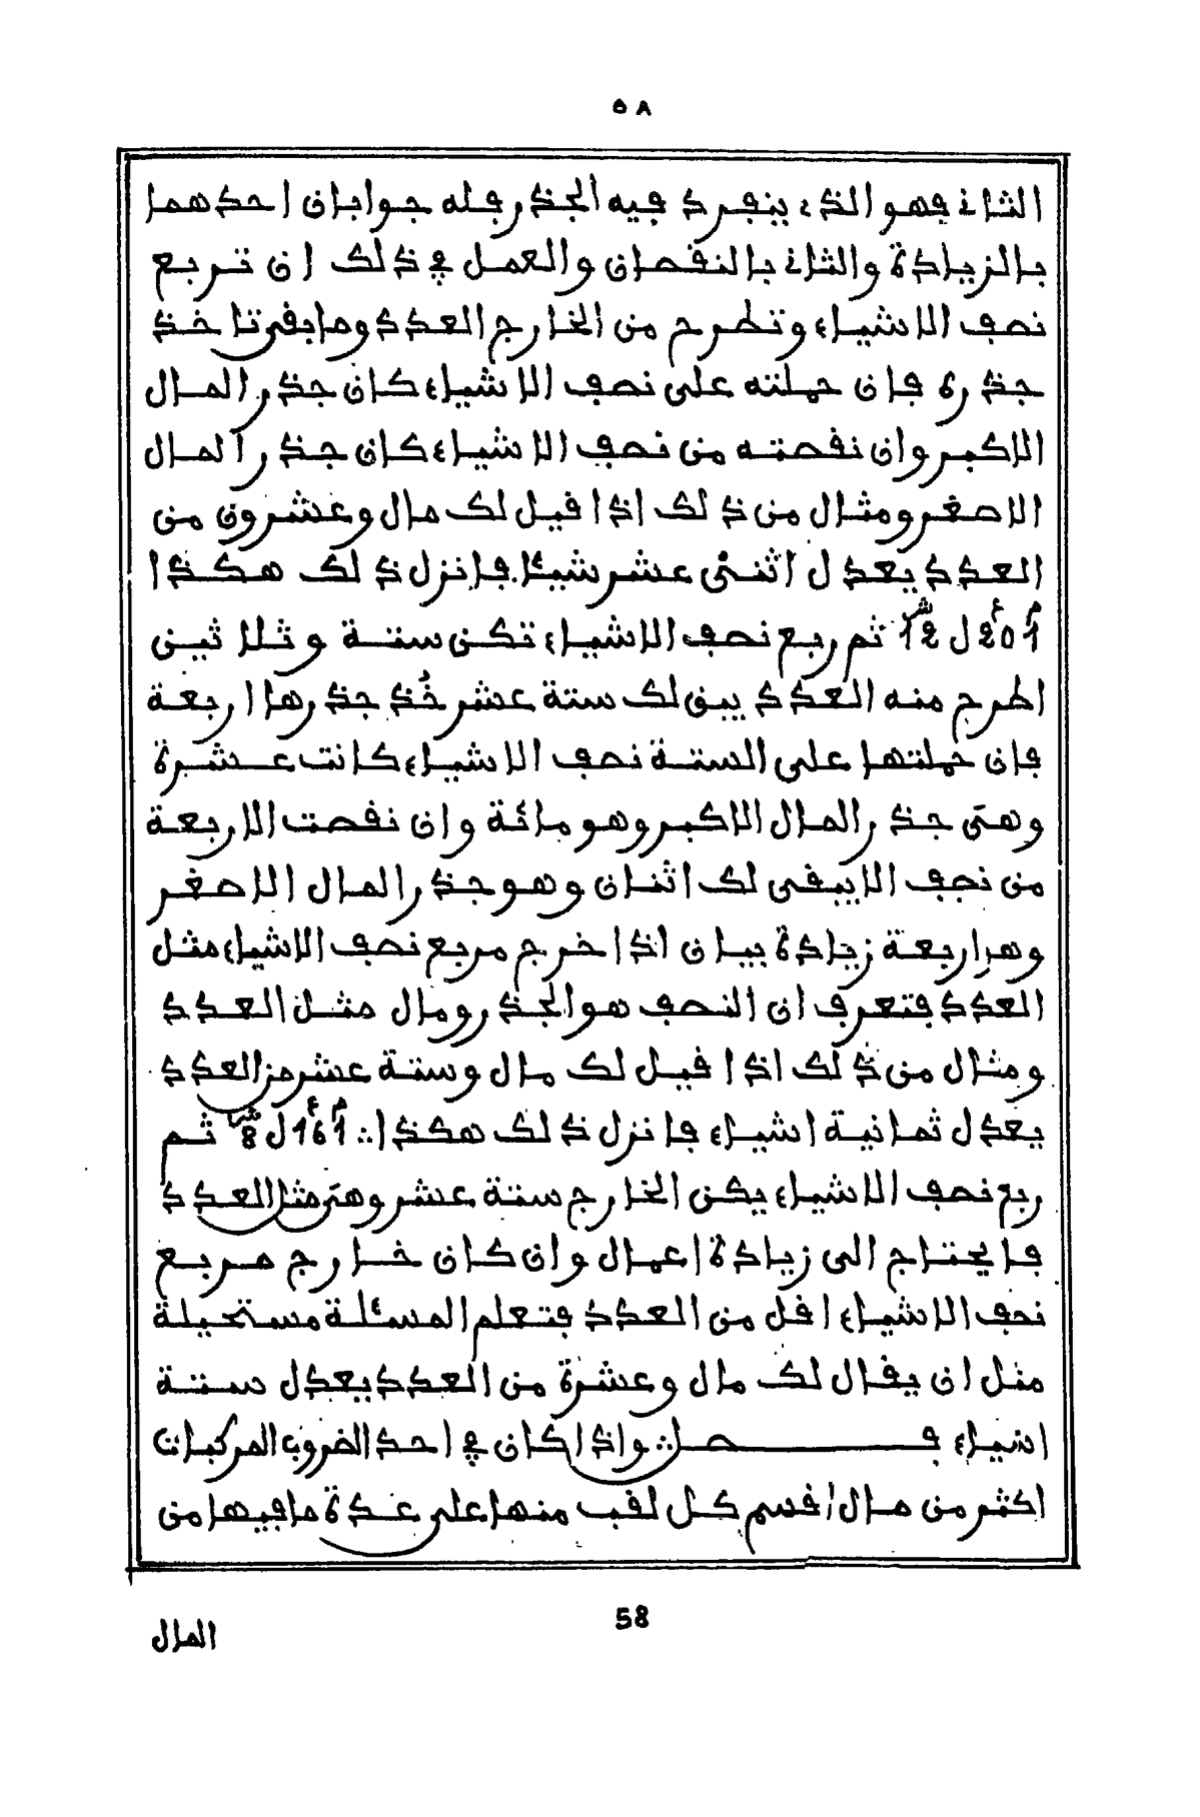 ٥٨
الثانى فهو الذى ينفرد فيه الجذر فله جوابان احدهما
بالزيادة والثانى بالنقصان والعمل فى ذلك ان تربع
نصف الاشياء وتطرح من الخارج العدد وما بقى تاخذ
جذره فان حملته على نصف الاشياء كان جذر المال
الاكبر وان نقصته من نصف الاشياء كان جذر المال
الاصغر ومثال من ذلك اذا قيل لك مال وعشرون من
العدد يعدل اثنى عشر شيئا فانزل ذلك هكذا
1م 20ع ل 12ش ثم ربع نصف الاشياء تكن ستة وثلاثين
اطرح منه العدد يبق لك ستة عشر خُذ جذرها اربعة
فان حملتها على الستة نصف الاشياء كانت عشرة
وهى جذر المال الاكبر وهو مائة وان نقصت الاربعة
من نصف الا يبقى لك اثنان وهو جذر المال الاصغر
وهو اربعة زيادة بيان اذا خرج مربع نصف الاشياء مثل
العدد فتعرف ان النصف هو الجذر ومال مثل العدد
ومثال من ذلك اذا قيل لك مال وستة عشر من العدد
يعدل ثمانية اشياء فانزل ذلك هكذا ∴ 1م 16ع ل 8ش ثم
ربع نصف الاشياء يكن الخارج ستة عشر وهى مثل العدد
فا يحتاج الى زيادة اعمال وان كان خارج مربع
نصف الاشياء اقل من العدد فتعلم المسئلة مستحيلة
مثل ان يقال لك مال وعشرة من العدد يعدل ستة
اشياء فـــــصل ∴ واذا كان فى احد الضروب المركبات
اكثر من مال اقسم كل لقب منها على عدة ما فيها من
58
المال